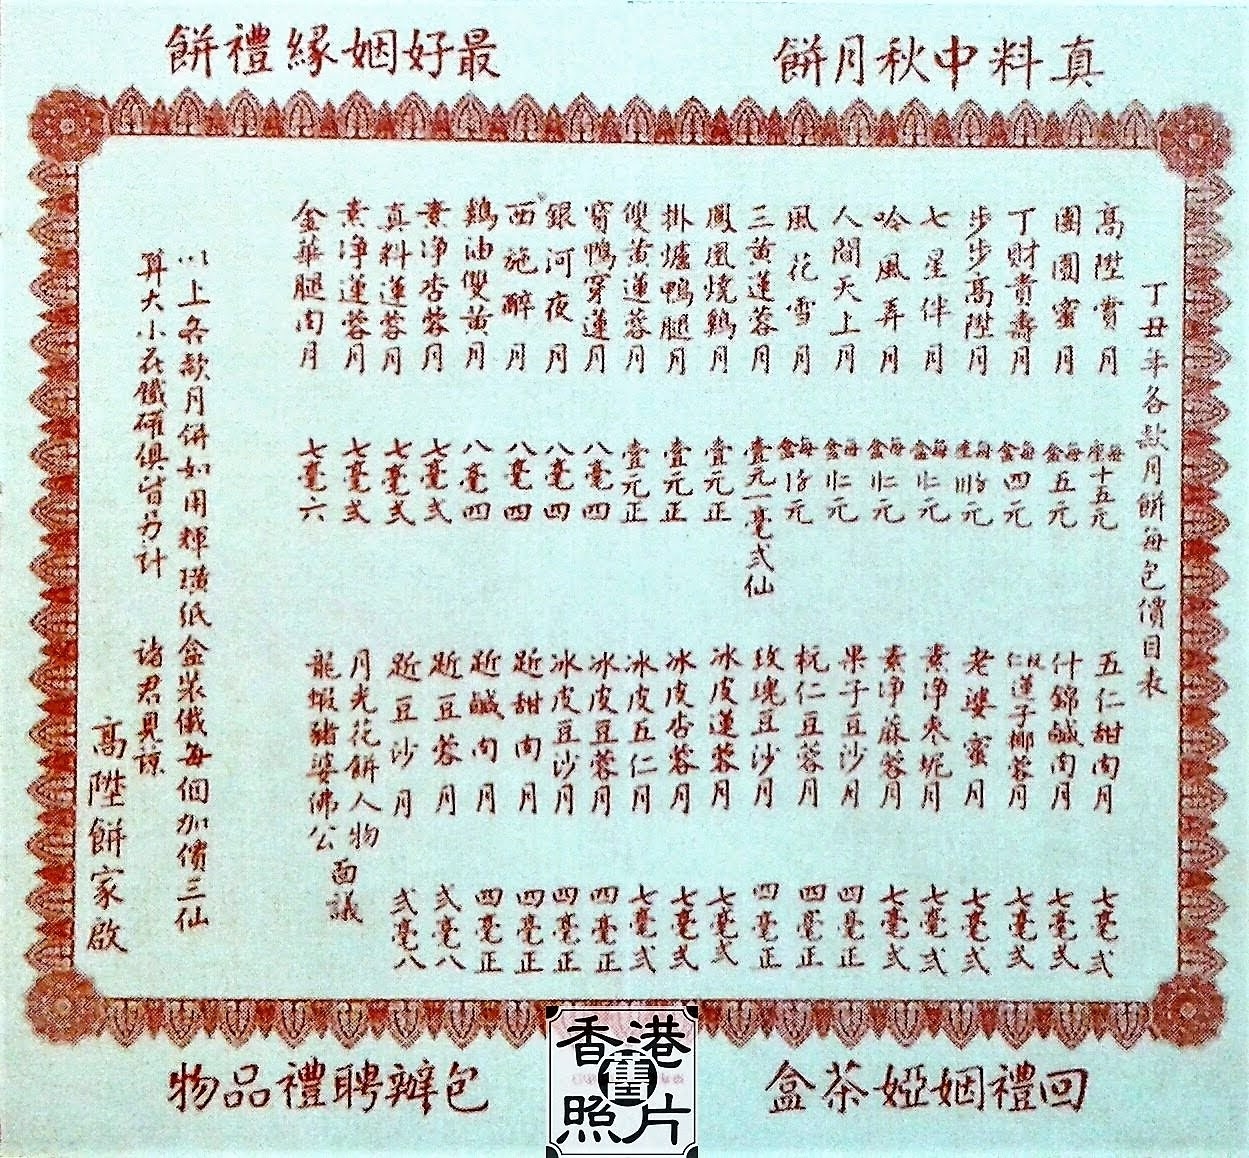 真料中秋月餅
最好姻緣禮餅
丁丑年各款月餅每包價目表
高陞寶月 每座十五元
團團蜜月 每盒五元
丁財貴壽月 每盒四元
步步高陞月 每座元
七星伴月 每盒元
吟風弄月 每盒元
人間天上月 每盒元
風花雪月 每盒元
三黃蓮蓉月 壹元一毫弍仙
鳳凰燒鷄月 壹元正
掛爐鴨腿月 壹元正
雙黃蓮蓉月 壹元正
寶鴨穿蓮月 八毫四
銀河夜月 八毫四
西施醉月 八毫四
鷄油雙黃月 八毫四
素净杏蓉月 七毫弍
真料蓮蓉月 七毫弍
素净蓮蓉月 七毫弍
金華腿肉月 七毫六
五仁甜肉月 七毫弍
什錦鹹肉月 七毫弍
仁蓮子椰蓉月 七毫弍
老婆蜜月 七毫弍
素净枣坭月 七毫弍
素净蔴蓉月 七毫弍
果子豆沙月 四毫正
杬仁豆蓉月 四毫正
玫瑰豆沙月 四毫正
冰皮蓮蓉月 七毫弍
冰皮杏蓉月 七毫弍
冰皮五仁月 七毫弍
冰皮豆蓉月 四毫正
冰皮豆沙月 四毫正
甜肉月 四毫正
鹹肉月 四毫正
豆蓉月 弍毫八
豆沙月 弍毫八
月光花餅人物
龍蝦豬婆佛公 面議
以上各款月餅如用輝璜紙盒裝儀每個加價三仙
算大小花籤確俱皆另計 諸君見諒
高陞餅家啟
回禮姻婭茶盒
包辦聘禮品物
香港舊照片